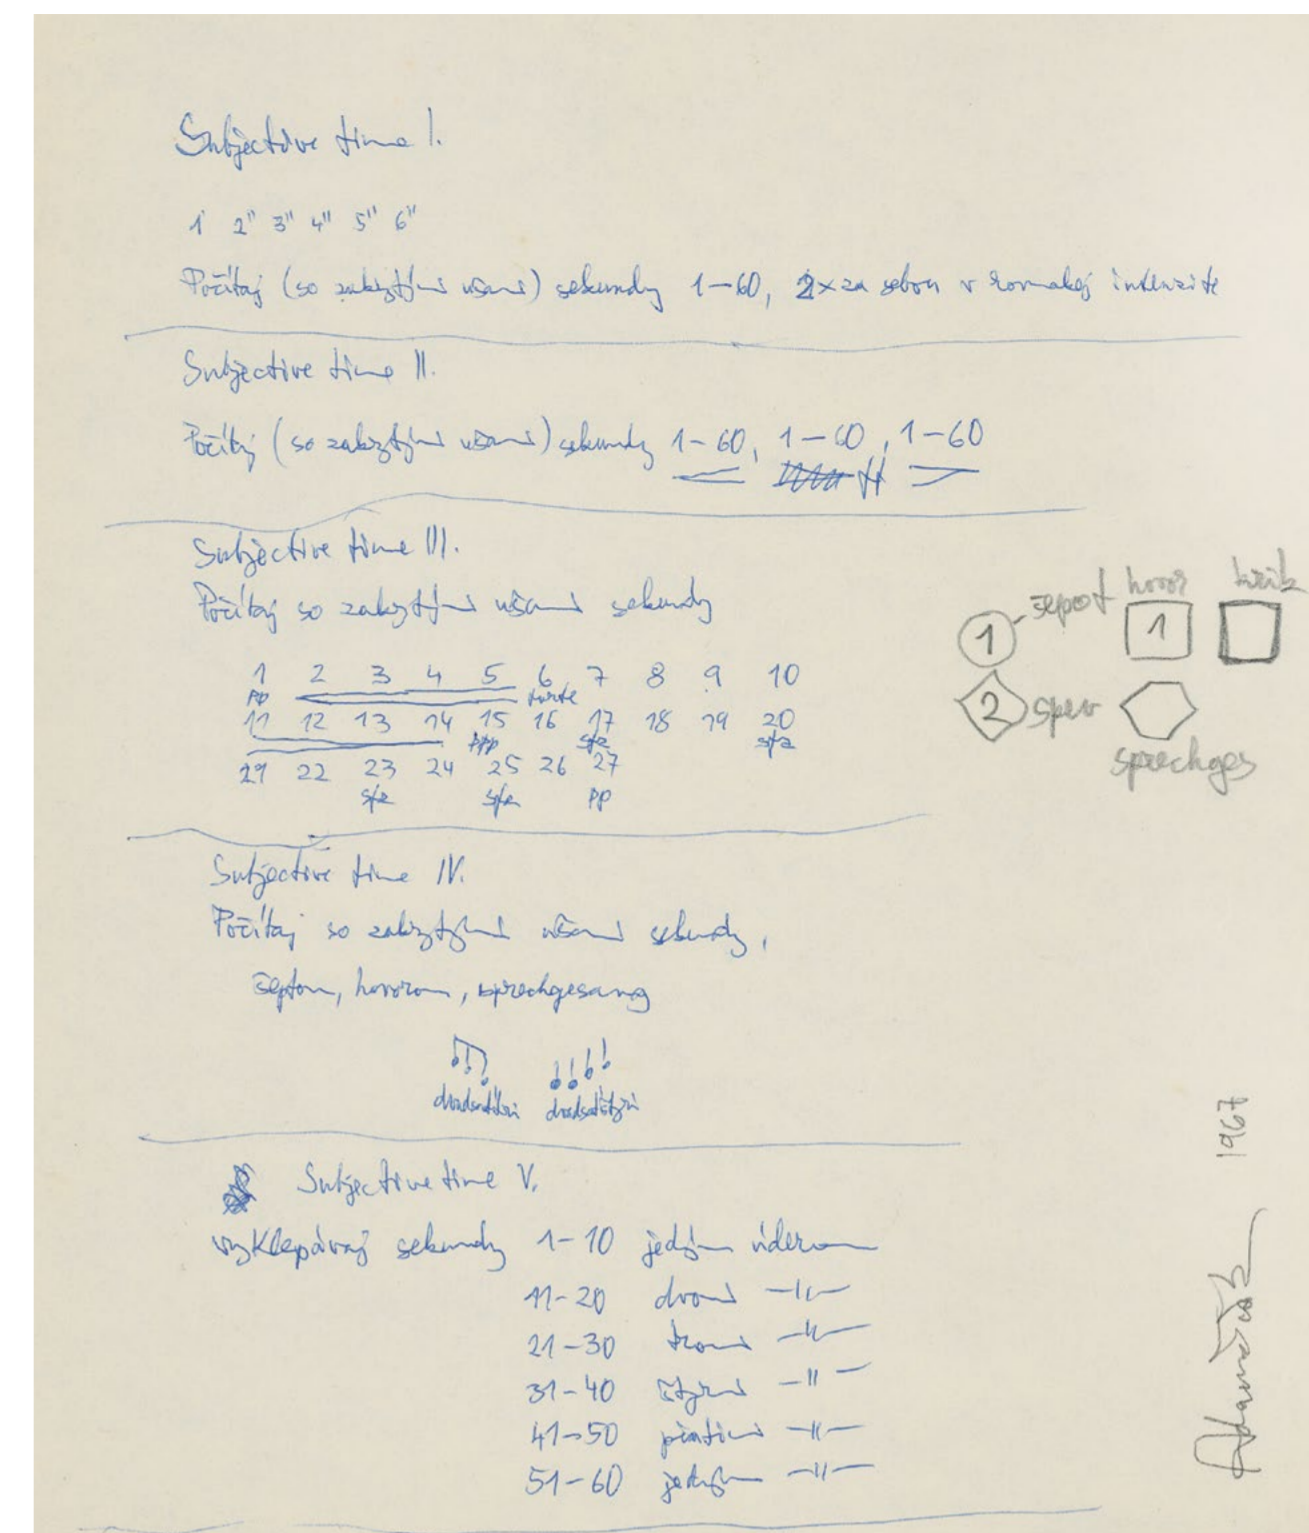 Subjective time I.
1" 2" 3" 4" 5" 6"
Počítaj (so zakrytými ušami) sekundy 1–60, 2x za sebou v rovnakej intenzite
Subjective time II.
Počítaj (so zakrytými ušami) sekundy 1–60, 1–60, 1–60
ff
Subjective time III.
Počítaj so zakrytými ušami sekundy
1 2 3 4 5 6 7 8 9 10
pp forte
11 12 13 14 15 16 17 18 19 20
ppp sfz sfz
21 22 23 24 25 26 27
sfz sfz pp
1 - šepot hovor 1 krik
2 spev
sprechges
Subjective time IV.
Počítaj so zakrytými ušami sekundy,
šeptom, hovorom, sprechgesang
dvadsaťtri dvadsaťštyri
Subjective time V.
vyklepávaj sekundy 1–10 jedným úderom
11–20 dvomi –"–
21–30 tromi –"–
31–40 štyrmi –"–
41–50 piatimi –"–
51–60 jedným –"–
Adamčiak 1967